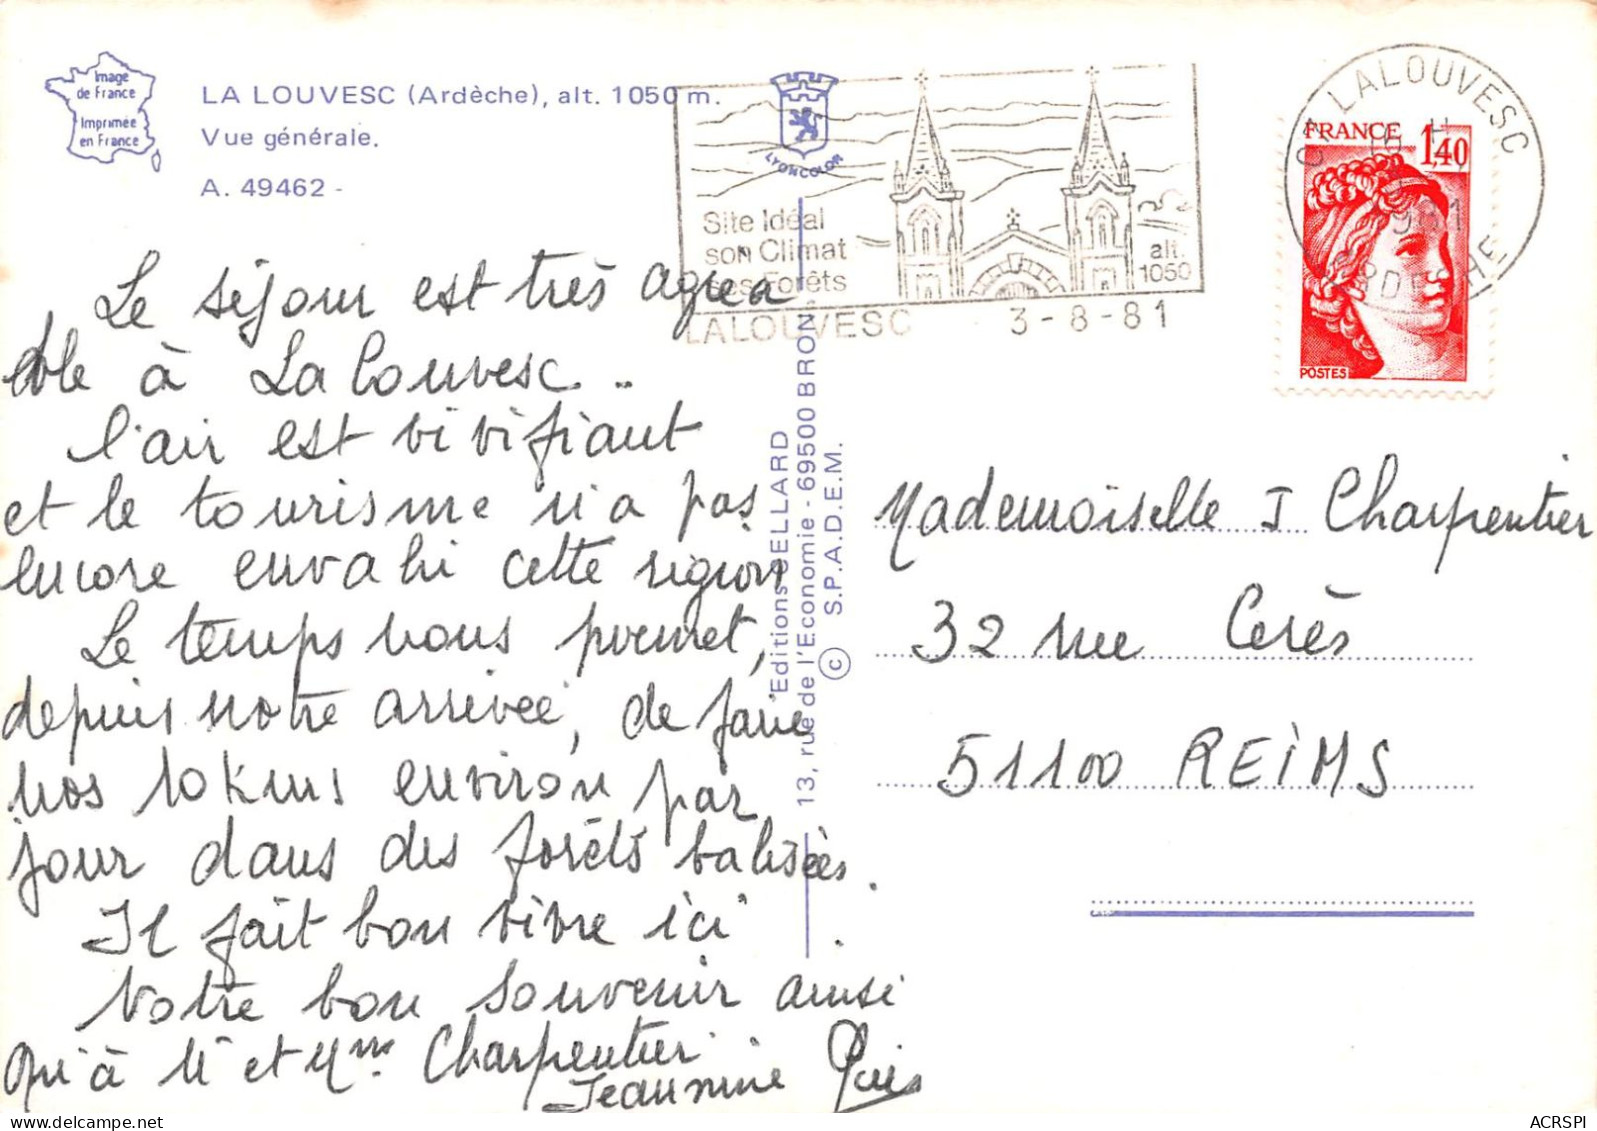 Image
de France
Imprimée
en France
LA LOUVESC (Ardèche), alt. 1050 m.
Vue générale.
A. 49462 -
LYONCOLOR
Site Idéal
son Climat
ses Forêts
alt.
1050
LALOUVESC 3-8-81
LALOUVESC
16 H
1981
ARDECHE
FRANCE 1,40
POSTES
Le séjour est très agréa
ble à La Louvesc..
l'air est vivifiant
et le tourisme n'a pas
encore envahi cette région
Le temps nous permet,
depuis notre arrivée, de faire
nos 10 kms environ par
jour dans des forêts balisées.
Il fait bon vivre ici.
Notre bon souvenir ainsi
qu'à Mr et Mme Charpentier.
Jeannine
Editions CELLARD
13, rue de l'Economie - 69500 BRON
© S.P.A.D.E.M.
Mademoiselle J Charpentier
32 rue Cérès
51100 REIMS
ACRSPI